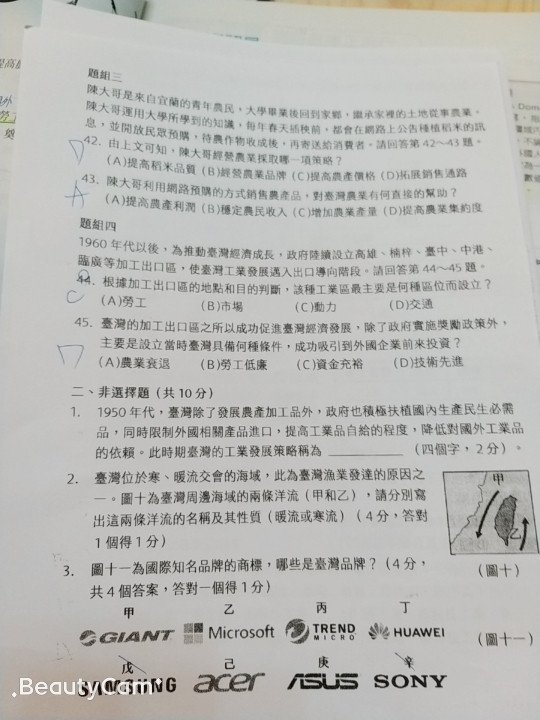 題組三
陳大哥是來自宜蘭的青年農民，大學畢業後回到家鄉，繼承家裡的土地從事農業。
陳大哥運用大學所學到的知識，每年春天插秧前，都會在網路上公告種植稻米的訊
息，並開放民眾預購，待農作物收成後，再寄送給消費者。請回答第42～43題。
42. 由上文可知，陳大哥經營農業採取哪一項策略？
(A)提高稻米品質 (B)經營農業品牌 (C)提高農產價格 (D)拓展銷售通路
D
43. 陳大哥利用網路預購的方式銷售農產品，對臺灣農業有何直接的幫助？
A
(A)提高農產利潤 (B)穩定農民收入 (C)增加農業產量 (D)提高農業集約度
題組四
1960 年代以後，為推動臺灣經濟成長，政府陸續設立高雄、楠梓、臺中、中港、
臨廣等加工出口區，使臺灣工業發展邁入出口導向階段。請回答第44～45題。
44. 根據加工出口區的地點和目的判斷，該種工業區最主要是何種區位而設立？
C
(A)勞工 (B)市場 (C)動力 (D)交通
45. 臺灣的加工出口區之所以成功促進臺灣經濟發展，除了政府實施獎勵政策外，
主要是設立當時臺灣具備何種條件，成功吸引到外國企業前來投資？
(A)農業衰退 (B)勞工低廉 (C)資金充裕 (D)技術先進
二、非選擇題（共10分）
1. 1950 年代，臺灣除了發展農產加工品外，政府也積極扶植國內生產民生必需
品，同時限制外國相關產品進口，提高工業品自給的程度，降低對國外工業品
的依賴。此時期臺灣的工業發展策略稱為 ________ （四個字，2分）。
2. 臺灣位於寒、暖流交會的海域，此為臺灣漁業發達的原因之
一。圖十為臺灣周邊海域的兩條洋流（甲和乙），請分別寫
出這兩條洋流的名稱及其性質（暖流或寒流）（4分，答對
1個得1分）
甲
乙
（圖十）
3. 圖十一為國際知名品牌的商標，哪些是臺灣品牌？（4分，
共4個答案，答對一個得1分）
甲 乙 丙 丁
GIANT Microsoft TREND MICRO HUAWEI
（圖十一）
戊 己 庚 辛
SAMSUNG acer ASUS SONY
.BeautyCam